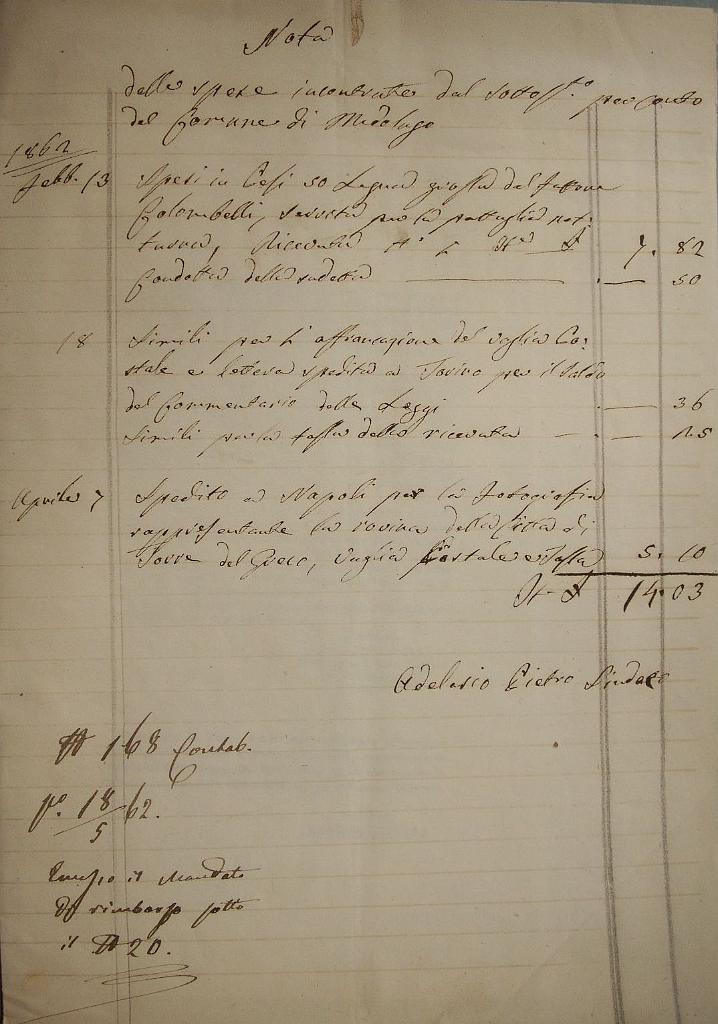 Nota
delle spese incontrate dal sottos.to per conto
del Comune di Medolago
1862
Febb. 13 Spesi in Cesi 50 Legna grossa dal fattore
Colombelli, servita per la pattuglia not-
turna, Ricevuta N° 1 It £ 7. 82
Condotta della sudetta — . — 50
18 Simili per l'affrancazione del vaglia Po-
stale e lettera spedita a Torino per il saldo
del Commentario delle Leggi . — 36
Simili per la tassa della ricevuta — . — 25
Aprile 7 Spedito a Napoli per la fotografia
rappresentante la rovina della Città di
Torre del Greco, vaglia Postale e Tassa 5. 10
It £ 14. 03
Adelasio Pietro Sindaco
N 168 Contab.
18/5 62.
Emesso il Mandato
di rimborso sotto
il N 20.